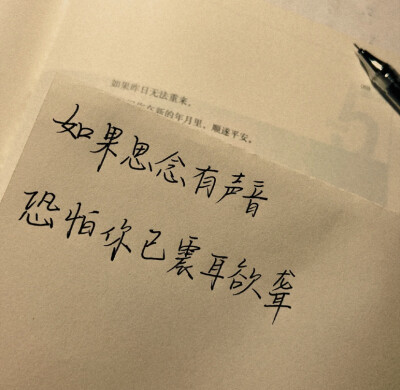 如果昨日无法重来，
在新的年月里，顺遂平安。
如果思念有声音
恐怕你已震耳欲聋